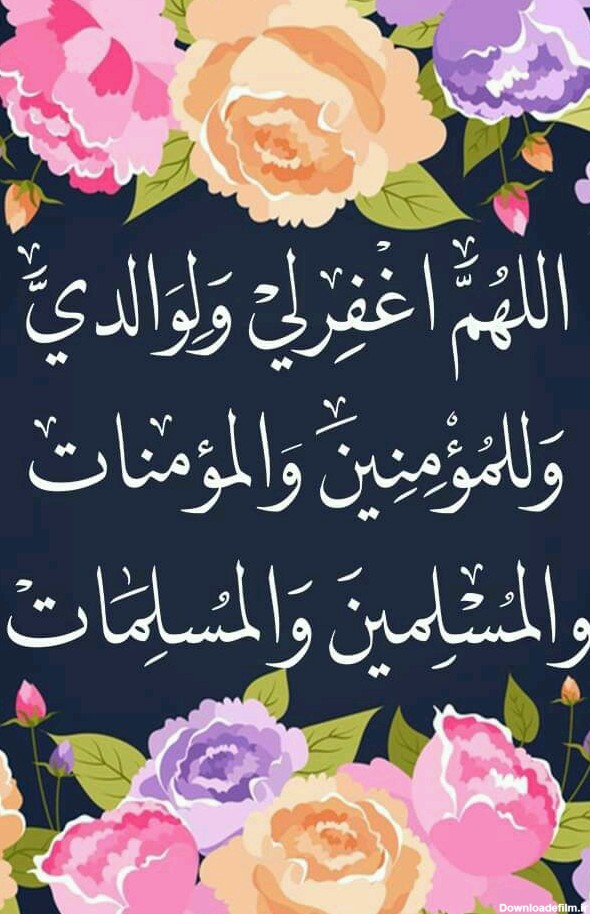 اللهُمَّ اغْفِرلِي وَلِوَالديَّ
وَللمُؤْمِنِينَ وَالمؤمنات
والمُسْلِمينَ وَالمُسلِمَات
Downloadefilm.ir